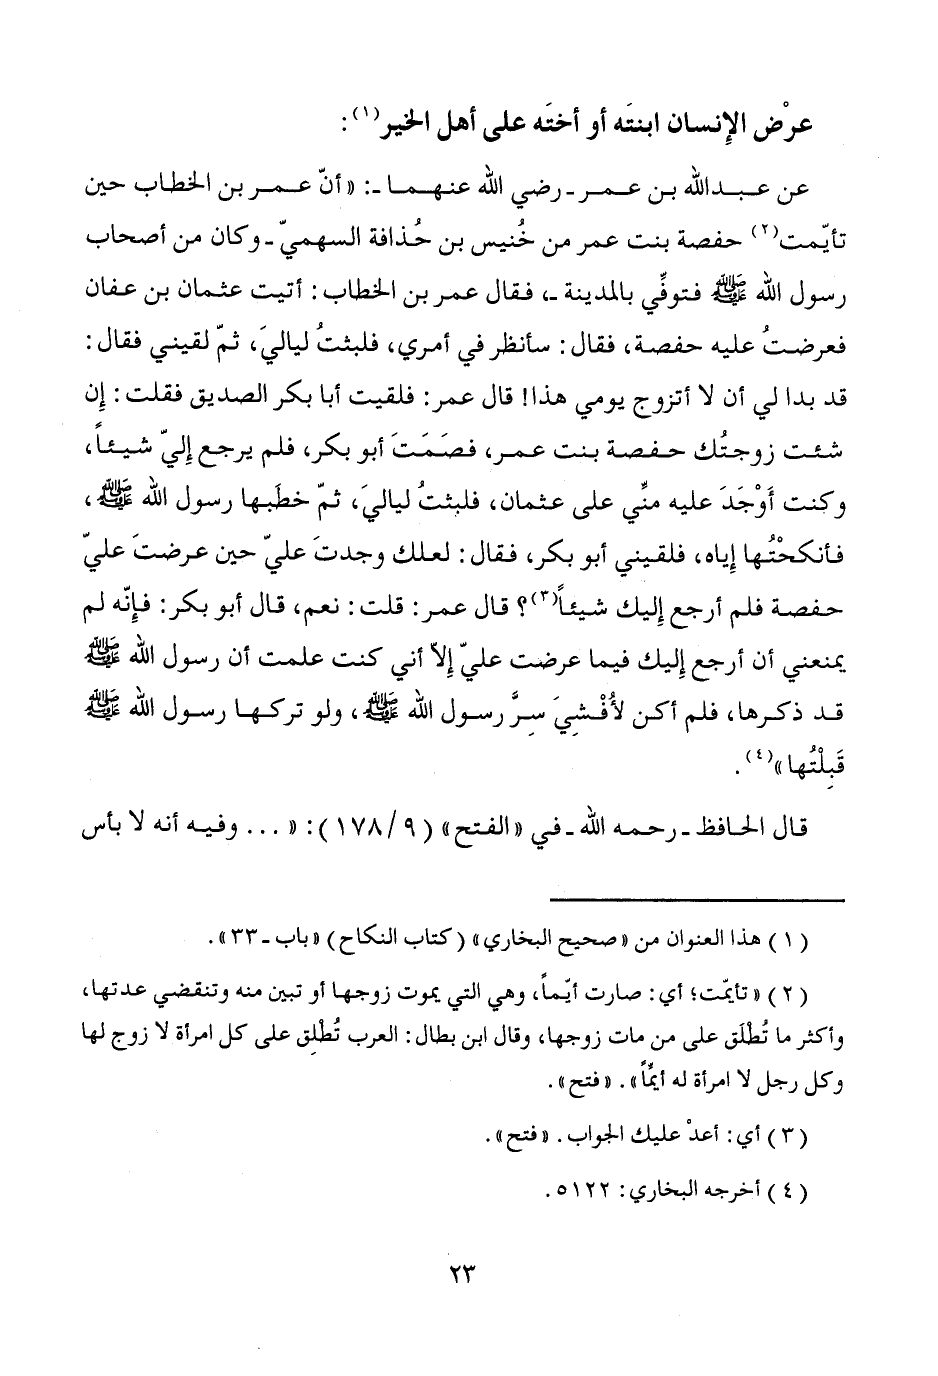 عرْض الإنسان ابنتَه أو أختَه على أهل الخير(١):
عن عبدالله بن عمر ـ رضي الله عنهما ـ: «أنّ عمر بن الخطاب حين
تأيّمت(٢) حفصة بنت عمر من خُنيس بن حُذافة السهميّ ـ وكان من أصحاب
رسول الله ﷺ فتوفّي بالمدينة ـ، فقال عمر بن الخطاب: أتيت عثمان بن عفان
فعرضتُ عليه حفصة، فقال: سأنظر في أمري، فلبثتُ لياليَ، ثمّ لقيني فقال:
قد بدا لي أن لا أتزوج يومي هذا! قال عمر: فلقيت أبا بكر الصديق فقلت: إن
شئت زوجتُك حفصة بنت عمر، فصَمَتَ أبو بكر، فلم يرجع إليّ شيئاً،
وكنت أَوْجَدَ عليه منّي على عثمان، فلبثتُ لياليَ، ثمّ خطَبها رسول الله ﷺ،
فأنكحْتُها إياه، فلقيني أبو بكر، فقال: لعلك وجدتَ عليّ حين عرضتَ عليّ
حفصة فلم أرجع إليك شيئاً(٣)؟ قال عمر: قلت: نعم، قال أبو بكر: فإنّه لم
يمنعني أن أرجع إليك فيما عرضت عليّ إلاّ أني كنت علمت أن رسول الله ﷺ
قد ذكرها، فلم أكن لأُفْشِيَ سِرَّ رسول الله ﷺ، ولو تركها رسول الله ﷺ
قَبِلْتُها»(٤).
قال الحافظ ـ رحمه الله ـ في «الفتح» (٩/ ١٧٨): «... وفيه أنه لا بأس
(١) هذا العنوان من «صحيح البخاري» (كتاب النكاح) «باب ـ ٣٣».
(٢) «تأيّمت؛ أي: صارت أيّماً، وهي التي يموت زوجها أو تبين منه وتنقضي عدتها،
وأكثر ما تُطْلَق على من مات زوجها، وقال ابن بطال: العرب تُطْلِق على كل امرأة لا زوج لها
وكل رجل لا امرأة له أيّماً». «فتح».
(٣) أي: أعدْ عليك الجواب. «فتح».
(٤) أخرجه البخاري: ٥١٢٢.
٢٣